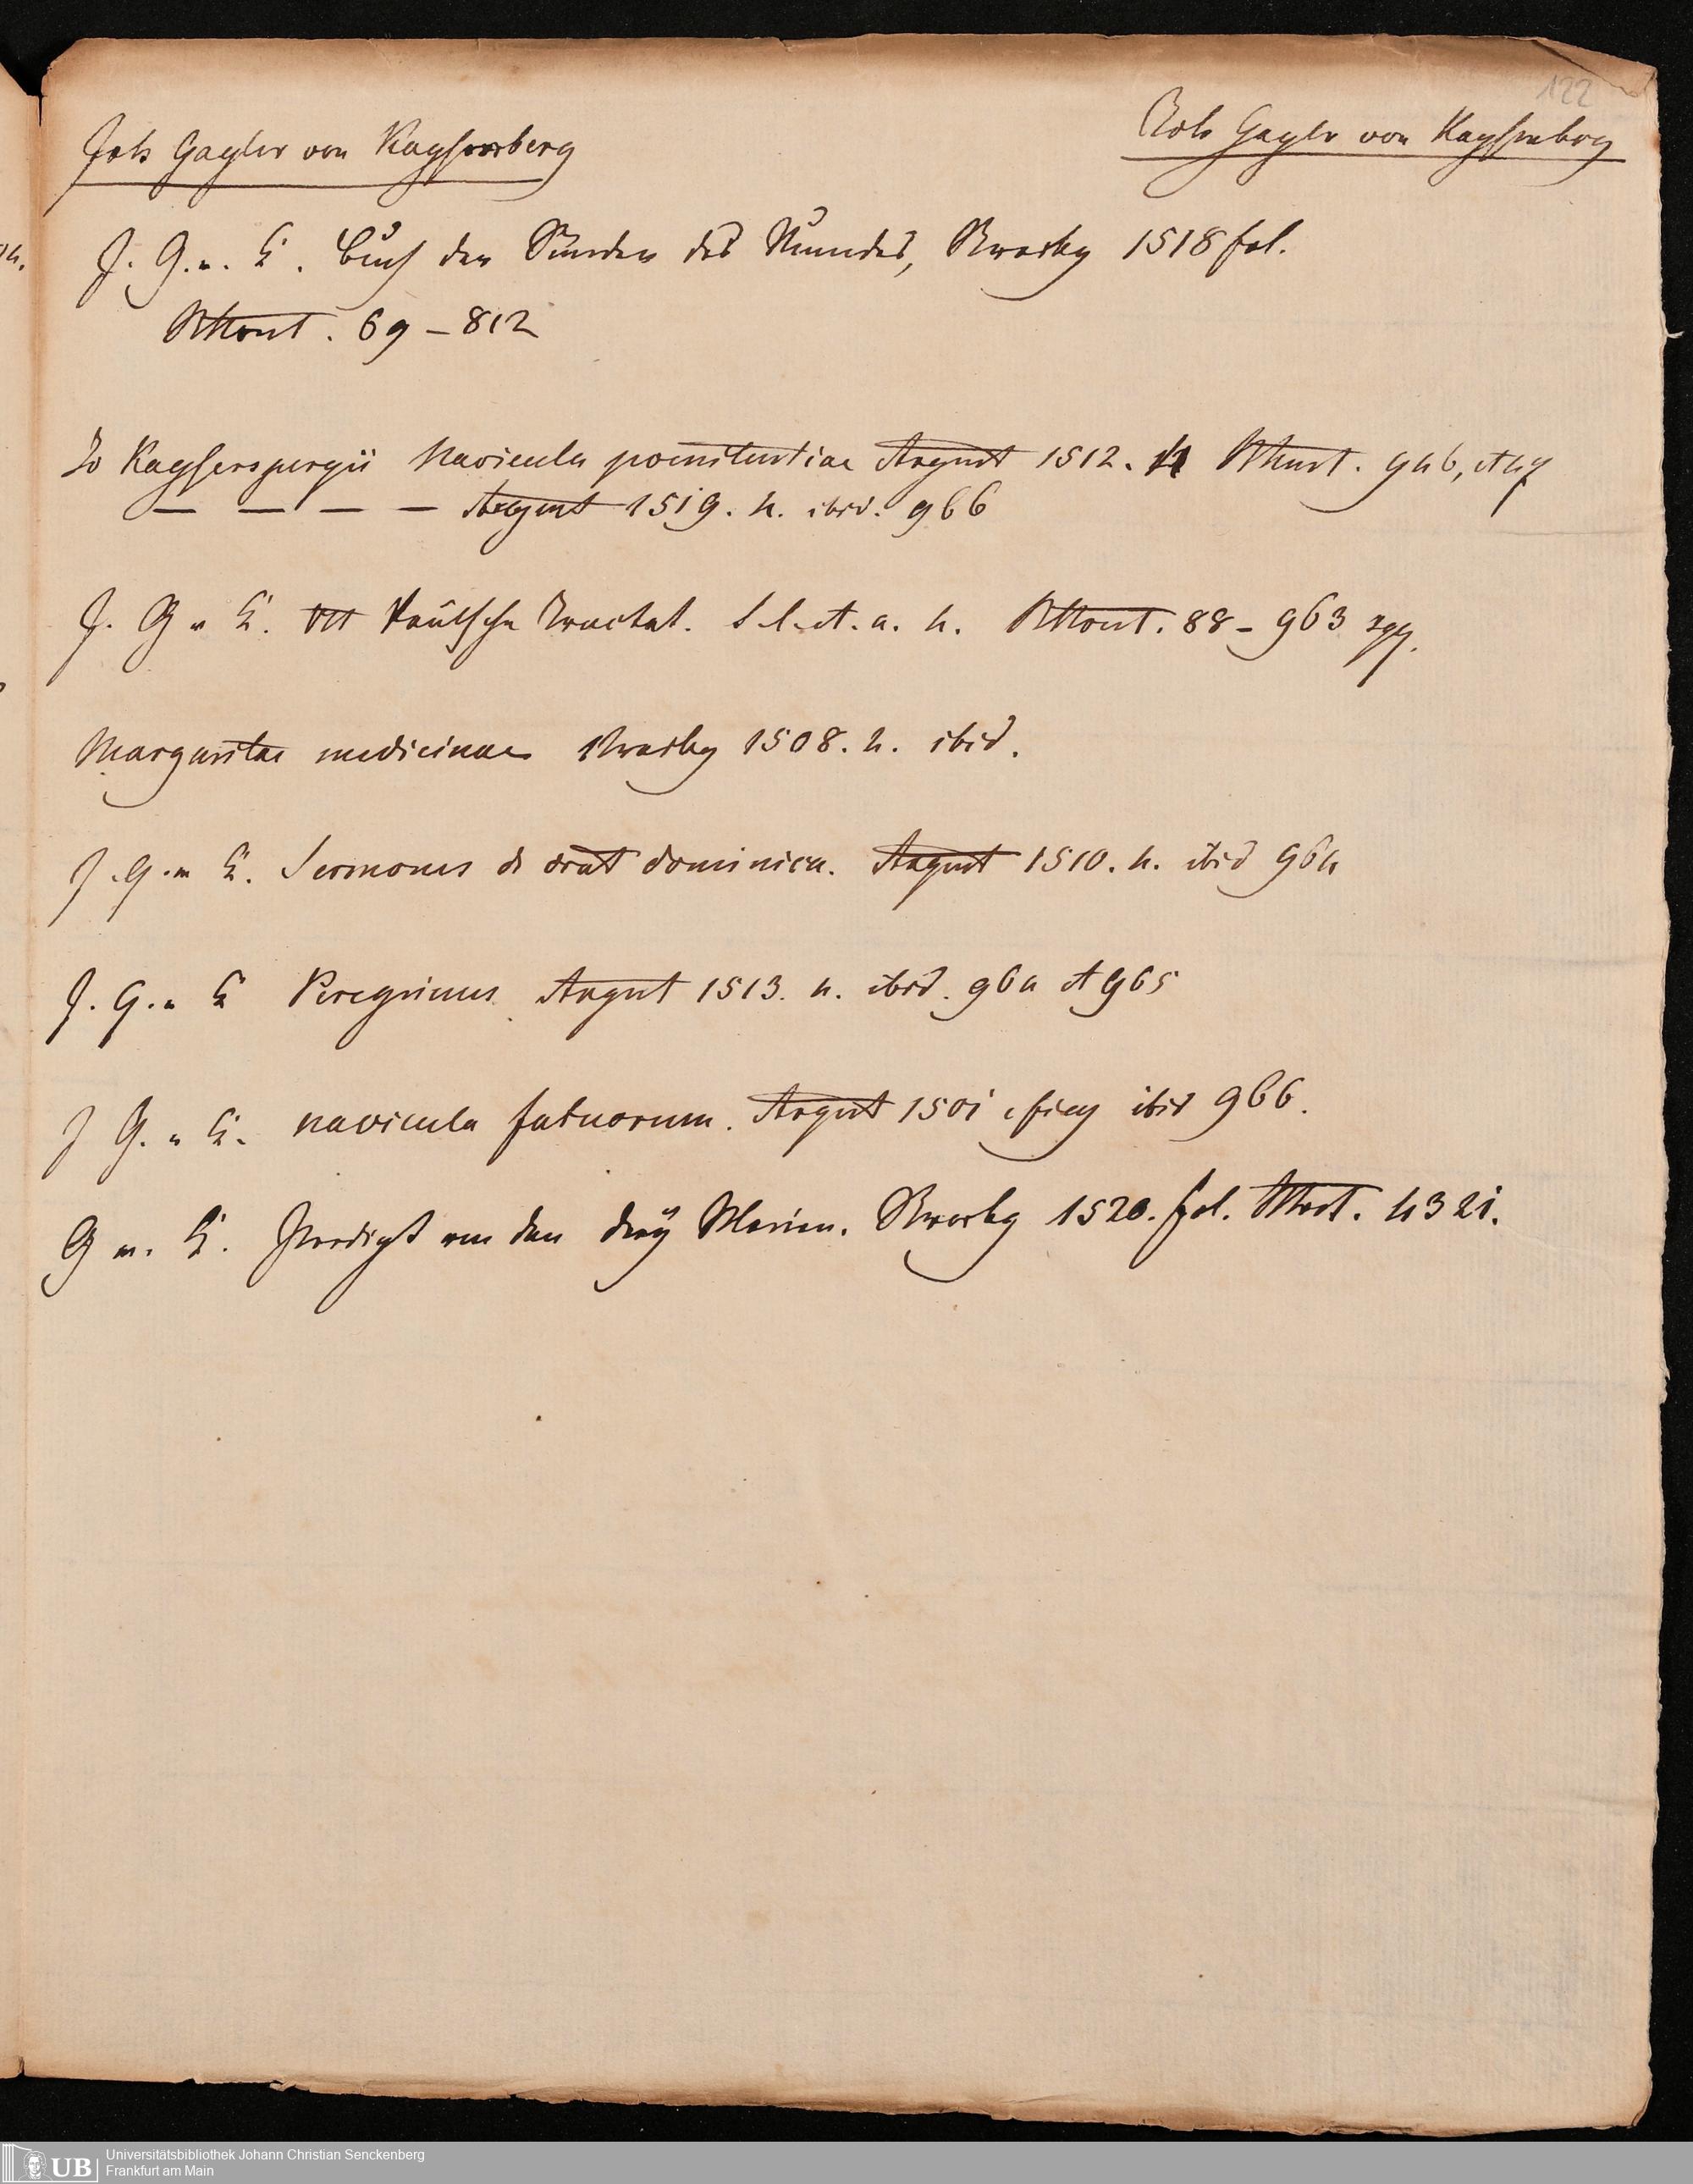 122
Joh Gayler von Kaysersberg
Joh Gayler von Kaysersberg
J. G. v. K. Buch der Sünden des Mundes, Strasbg 1518 fol.
69 – 812
Jo Kayserspergii Navicula poenitentiae Argent 1512. 4 446, et
— — — — Argent 1519. 4. ibid. 966
J. G v K. Deutsche Tractat. S. l. et. a. 4. 88 – 963 sqq.
Margaritae medicinae Strasbg 1508. 4. ibid.
J. G. v K. Sermones de orat dominica. Argent 1510. 4. ibid 964
J. G. v K Peregrinus. Argent 1513. 4. ibid. 964 et 965
J G. v K. navicula fatuorum. Argent 1501 ibid 966.
G v. K. Predigt von den drey Marien. Strasbg 1520. fol. 4321.
Universitätsbibliothek Johann Christian Senckenberg
Frankfurt am Main
UB